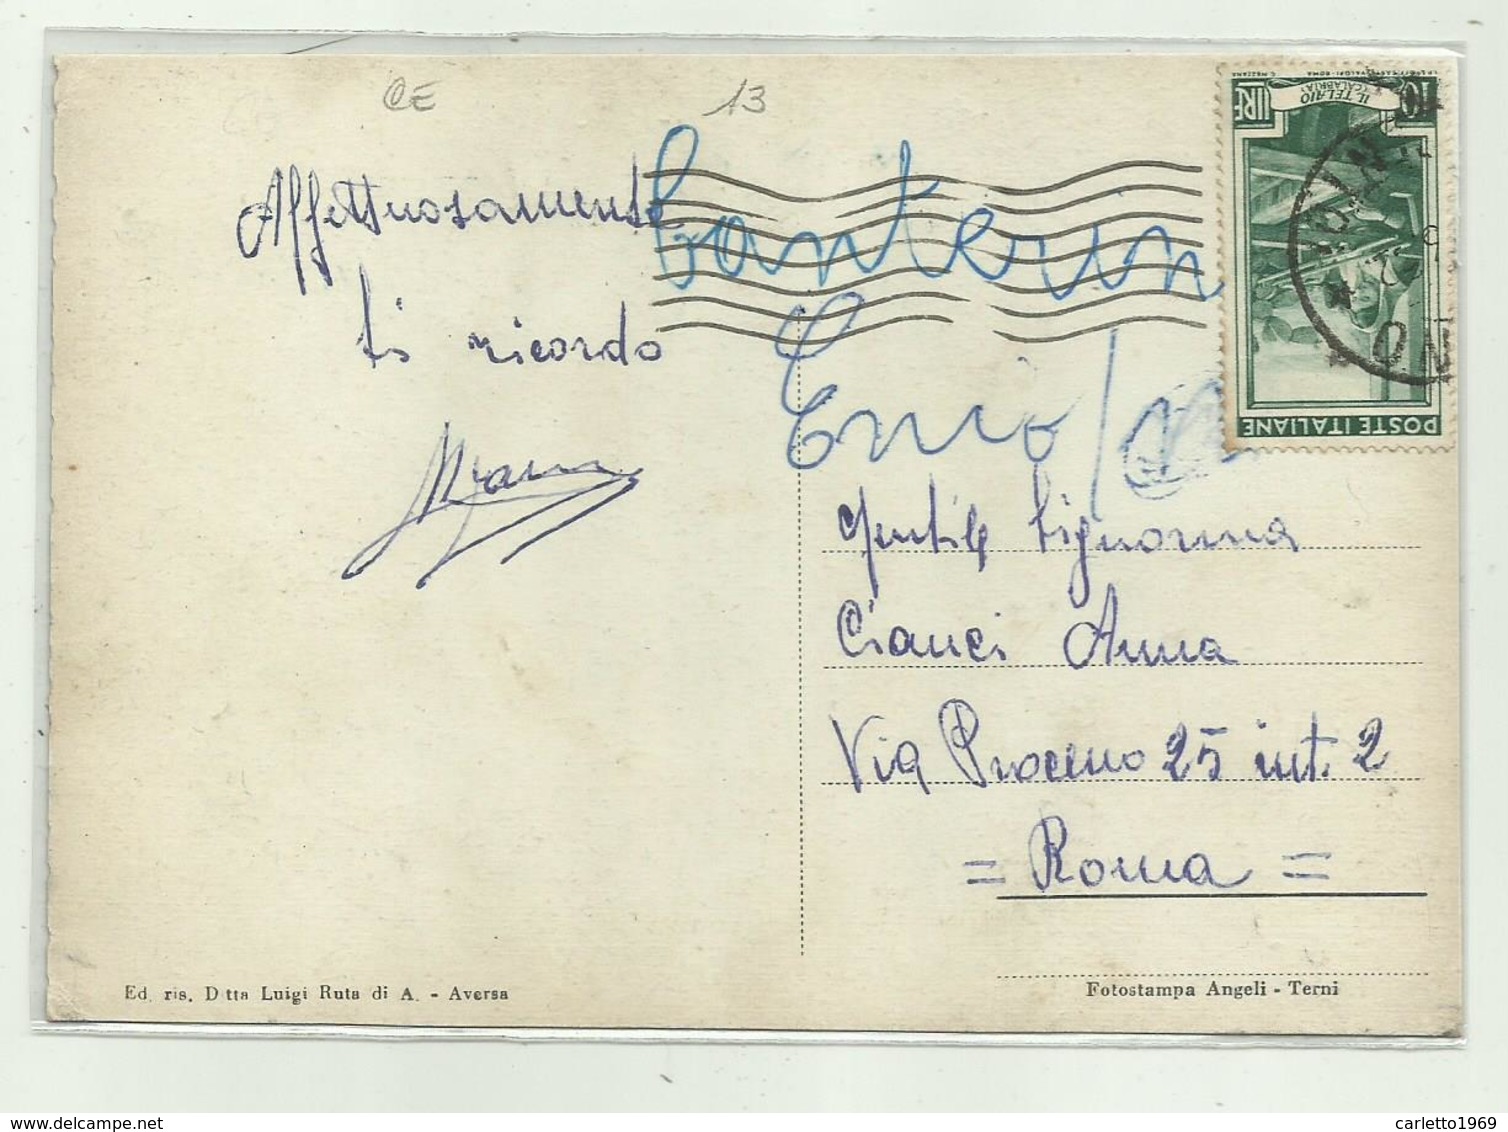 CE
13
Affettuosamente
ti ricordo
Canterin
Enio
IL TELAIO
(CALABRIA)
LIRE
10
POSTE ITALIANE
Gentile Signorina
Cianci Anna
Via Proceno 25 int. 2
= Roma =
Ed. ris. Ditta Luigi Ruta di A. - Aversa
Fotostampa Angeli - Terni
carletto1969